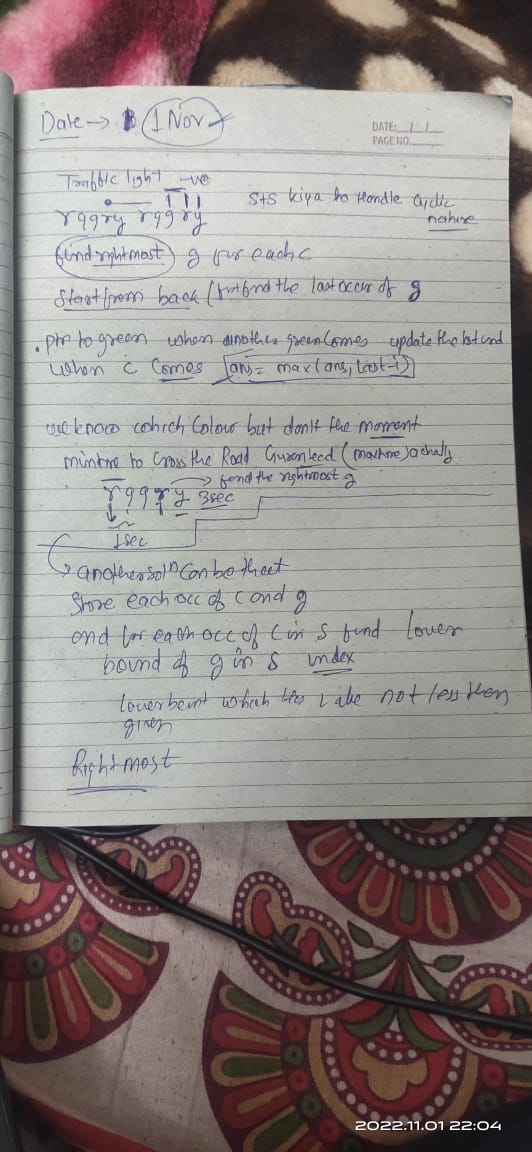 Date → 1 Nov
DATE: / /
PAGE NO.
Traffic light -ve
rggry rggry
S+S kiya to Handle Cyclic
nature
find rightmost g for each c
Start from back ( find the last occur of g
. ptr to green when another green Comes update the last and
when c Comes ans = max(ans, last-i)
we know which Colour but don't the moment
mintime to Cross the Road Guarenteed (machine) achally
→ find the rightmost g
rggry 3sec
1sec
→ another solⁿ Can be that
Store each occ of c and g
and for each occ of c in S find lower
bound of g in S index
lower which value not less then
given
Rightmost
2022.11.01 22:04